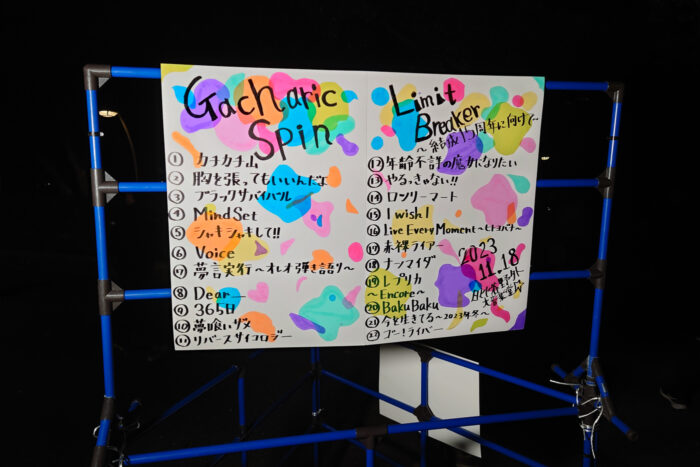 Gacharic
Spin
① カチカチ山
② 胸を張ってもいいんだよ
③ ブラックサバイバル
④ MindSet
⑤ シャキシャキして!!
⑥ Voice
⑦ 夢言実行〜オレオ弾き語り〜
⑧ Dear__
⑨ 365日
⑩ 夢喰いザメ
⑪ リバースサイコロジー
Limit
Breaker
〜結成15周年に向けて〜
⑫ 年齢不詳の魔女になりたい
⑬ やるっきゃない!!
⑭ ロンリーマート
⑮ I wish I
⑯ Live Every Moment
⑰ 赤裸ライアー
⑱ ナンマイダ
⑲ レプリカ
〜Encore〜
⑳ BakuBaku
㉑ 今を生きてる〜2023年冬〜
㉒ ゴー!ライバー
2023
11.18
日比谷野外
大音楽堂